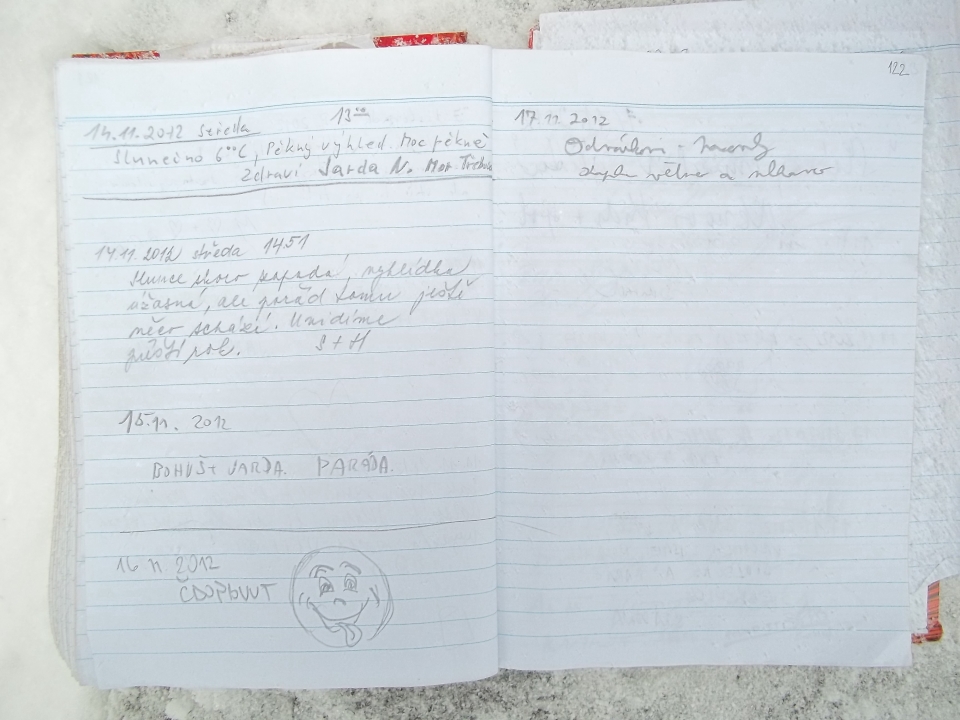 14.11.2012 Středa 13⁰⁰
Slunečno 6°C, Pěkný výhled. Moc pěkně
Zdraví Jarda N. Mor. Třebová
14.11.2012 středa 1451
Slunce skoro zapadá, vyhlídka
úžasná, ale pořád tomu ještě
něco schází. Uvidíme
příští rok. S + H
15.11. 2012
BOHUŠ + JARDA. PARÁDA.
16 11 2012
122
17.11 2012